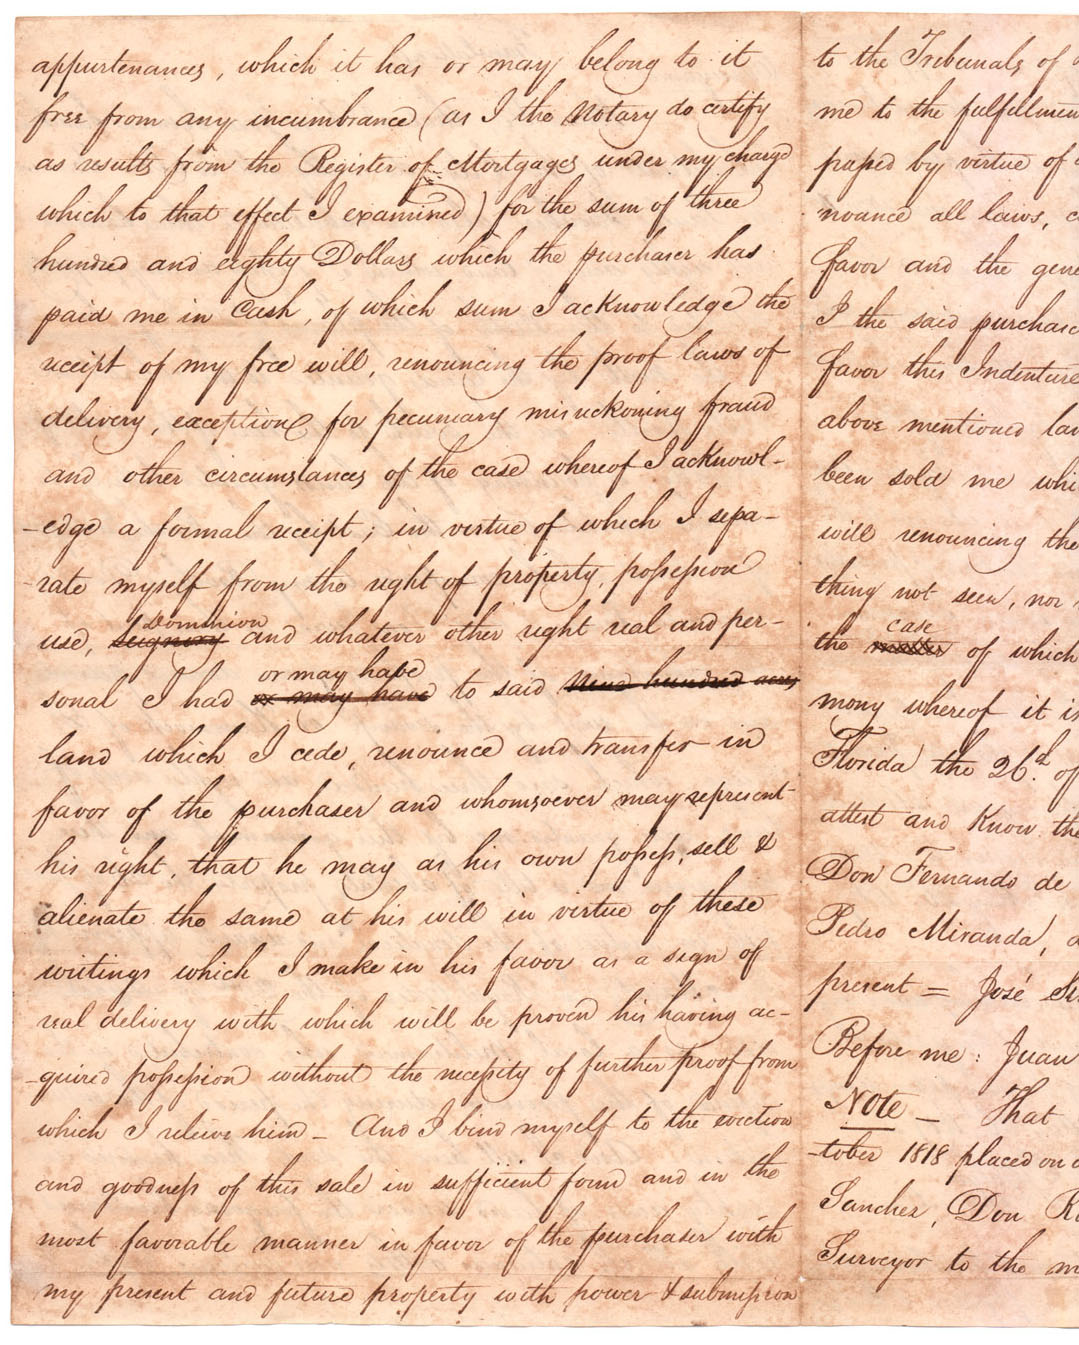 appurtenances, which it has or may belong to it
free from any incumbrance (as I the Notary do certify
as results from the Register of Mortgages under my charge
which to that effect I examined) for the sum of three
hundred and eighty Dollars which the purchaser has
paid me in Cash, of which sum I acknowledge the
receipt of my free will, renouncing the proof laws of
delivery, exceptions for pecuniary misreckoning fraud
and other circumstances of the case whereof I acknowl-
-edge a formal receipt; in virtue of which I sepa-
-rate myself from the right of property, possession
Dominion
use, seignory and whatever other right real and per-
or may have
sonal I had or may have to said Nine hundred acres
land which I cede, renounce and transfer in
favor of the purchaser and whomsoever may represent
his right, that he may as his own possess, sell &
alienate the same at his will in virtue of these
writings which I make in his favor as a sign of
real delivery with which will be proven his having ac-
-quired possession without the necessity of further proof from
which I relieve him - And I bind myself to the eviction
and goodness of this sale in sufficient form and in the
most favorable manner in favor of the purchaser with
my present and future property with power & submission
to the Tribunals of
me to the fulfillmen
passed by virtue of
nounce all laws,
favor and the gene
I the said purchase
favor this Indenture
above mentioned lan
been sold me whi
will renouncing the
thing not seen, nor
case
the matter of which
mony whereof it is
Florida the 26.d of
attest and Know the
Don Fernando de
Pedro Miranda,
present = José
Before me: Juan
Note - That
-tober 1818 placed on
Sanchez, Don
Surveyor to the